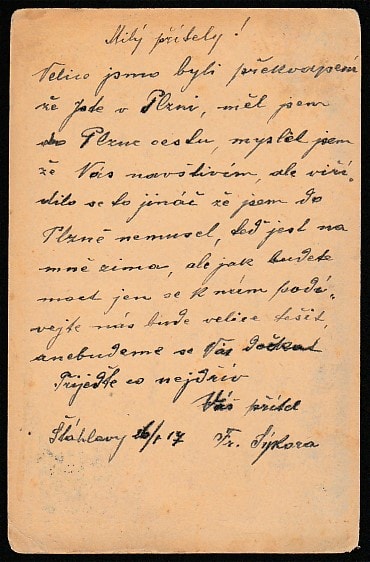 Milý přítely!
Velice jsme byli překvapeni
že jste v Plzni, měl jsem
do Plzně cestu, myslel jsem
že Vás navštívím, ale viří-
dilo se to jináč že jsem do
Plzně nemusel, teď jest na
mně zima, ale jak budete
moct jen se k nám podí-
vejte nás bude velice těšit,
anebudeme se Vás dočkat
Přijeďte co nejdřív
Váš přítel
Šťáhlavy 26/1 17 Fr. Sýkora